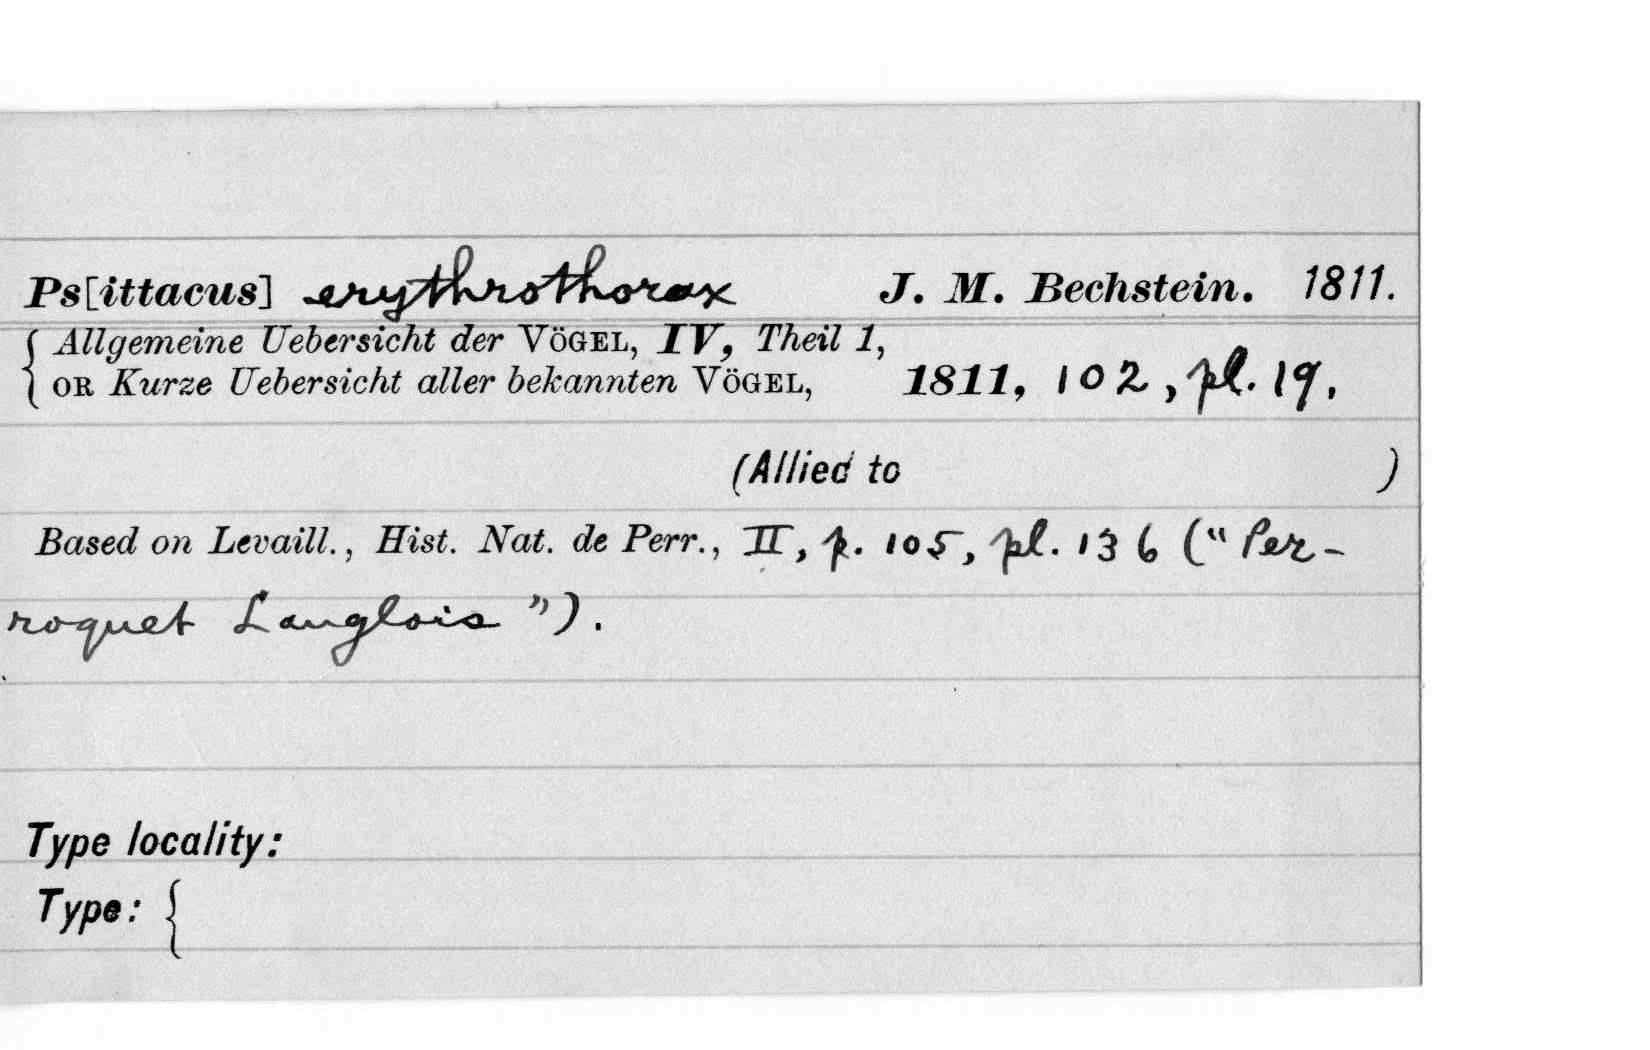 Ps[ittacus] erythrothorax J. M. Bechstein. 1811.
{ Allgemeine Uebersicht der VÖGEL, IV, Theil 1,
OR Kurze Uebersicht aller bekannten VÖGEL, 1811, 102, pl. 19.
(Allied to )
Based on Levaill., Hist. Nat. de Perr., II, p. 105, pl. 136 ("Per-
roquet Langlois").
Type locality:
Type: {